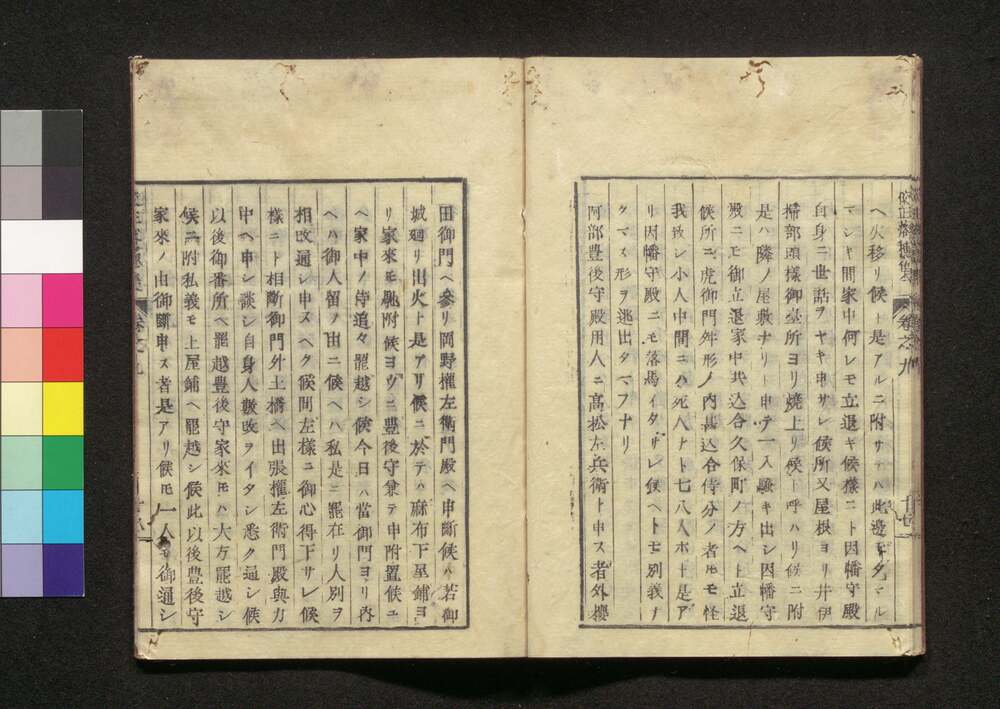 ヘ火移リ候ト是アルニ附サテハ此邊モタマル
マシヤ間家中何レモ立退キ候樣ニト因幡守殿
自身ニ世話ヲヤキ申サレ候所又屋根ヨリ井伊
掃部頭樣御臺所ヨリ燒上リ候ト呼ハリ候ニ附
是ハ隣ノ屋敷ナリト申テ一入騷キ出シ因幡守
殿ニモ御立退家中共込合久保町ノ方ヘト立退
候所ニ虎御門舛形ノ内甚込合侍分ノ者モ怪
我致シ小人中間ニハ死人トト七八人ホト是ア
リ因幡守殿ニモ落馬イタサレ候ヘトモ別義ノ
クマヌ形ヲ逃出タマフナリ
阿部豊後守殿用人ニ高松左兵衛ト申ス者外櫻
田御門ヘ參リ岡野權左衛門殿ヘ申斷候ハ若御
城廻リ出火ト是アリ候ニ於テハ麻布下屋鋪ヨ
リ家來モ馳附候ヨウニ豊後守兼テ申附置候ニ
ヘ家中ノ侍追々罷越シ候今日ハ當御門ヨリ内
ヘハ御人留ノ由ニ候ヘハ私是ニ罷在リ人別ヲ
相改通シ申スヘク候間左樣ニ御心得下サレ候
樣ニト相斷御門外土橋ヘ出張權左衛門殿與力
中ヘ申シ談シ自身人數改ヲイタシ悉ク通シ候
以後御番所ヘ罷越豊後守家來モハ大方罷越シ
候ニ附私義モ上屋鋪ヘ罷越シ候此以後豊後守
家來ノ由御斷申ス者是アリ候モ一人モ御通シ